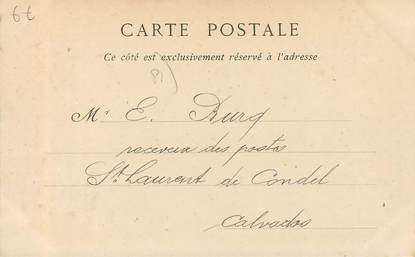 6t
CARTE POSTALE
Ce côté est exclusivement réservé à l'adresse
Mr E. Durq
receveur des postes
St Laurent de Condel
Calvados